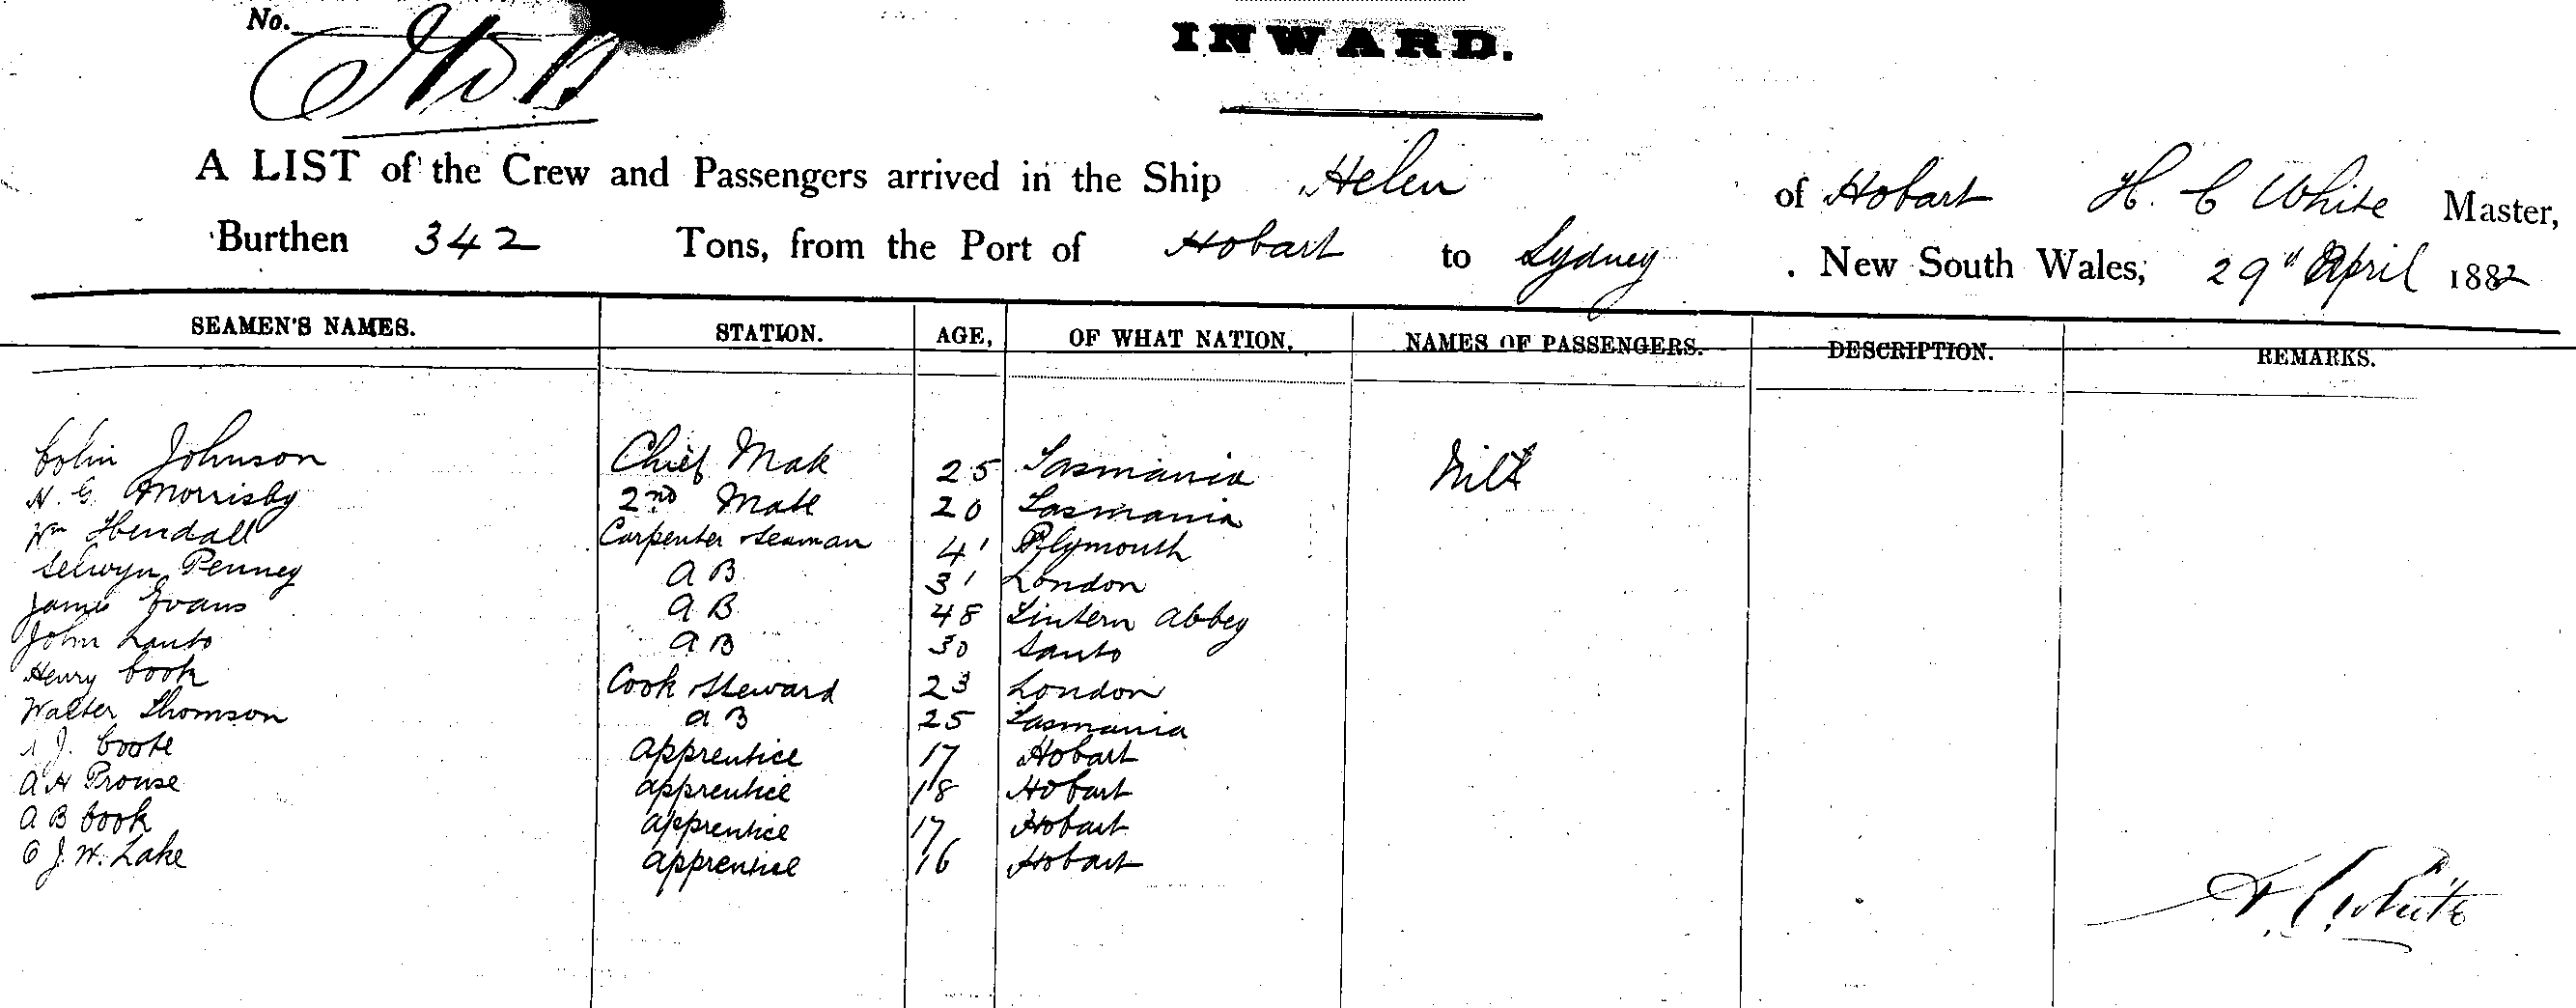 No.
INWARD.
A LIST of the Crew and Passengers arrived in the Ship Helen of Hobart H. C White Master,
Burthen 342 Tons, from the Port of Hobart to Sydney. New South Wales, 29th April 1882
SEAMEN'S NAMES. STATION. AGE, OF WHAT NATION. NAMES OF PASSENGERS. DESCRIPTION. REMARKS.
Colin Johnson Chief Mate 25 Tasmania Nil
H. G. Morrisby 2nd Mate 20 Tasmania
Wm Carpenter Seaman 41 Plymouth
Selwyn Penney A B 31 London
James Evans A B 48 Tintern Abbey
John Santo A B 30 Santo
Henry Cook Cook Steward 23 London
Walter Thomson A B 25 Tasmania
J. Coote Apprentice 17 Hobart
A H Prouse Apprentice 18 Hobart
A B Cook Apprentice 17 Hobart
C J. W. Lake Apprentice 16 Hobart
H. C. White